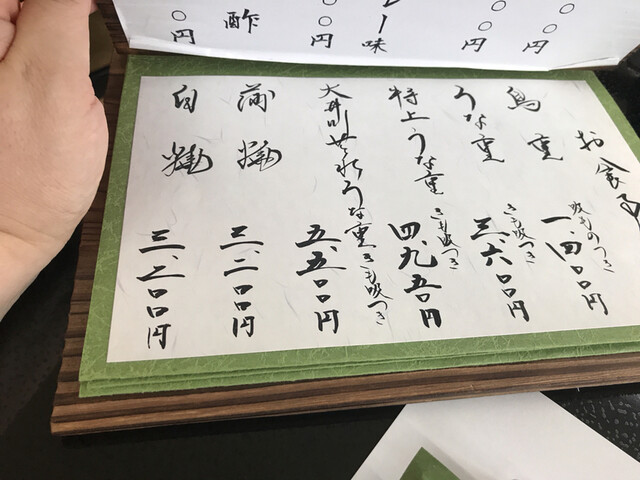 お食事
鳥重
吸ものつき
一、四〇〇円
うな重
きも吸つき
三、六〇〇円
特上うな重
きも吸つき
四、九五〇円
大井川共水うな重
きも吸つき
五、五〇〇円
蒲焼
三、二〇〇円
白焼
三、二〇〇円
〇〇円
〇〇円
ー味
〇円
酢
〇円